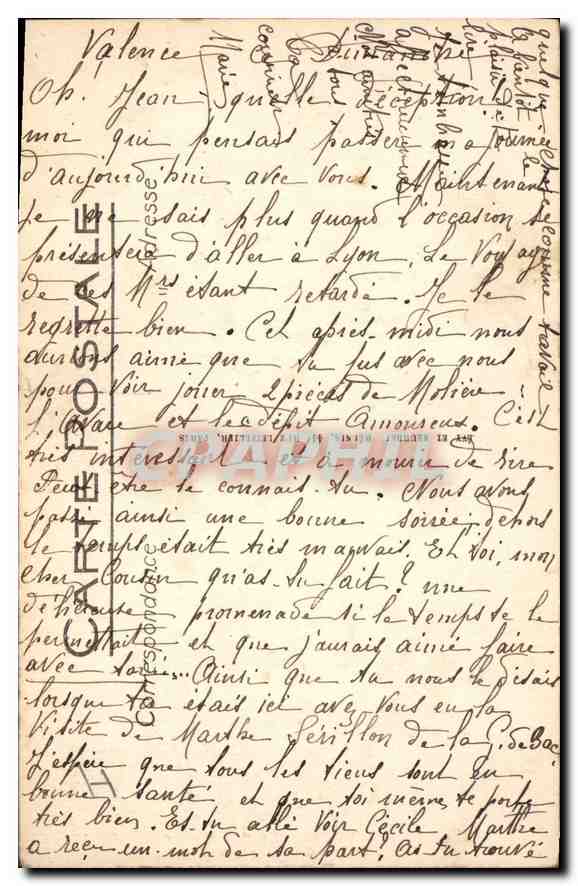 Valence Dimanche
Oh. Jean, quelle déception.
moi qui pensais passer ma journée
d'aujourd'hui avec vous. Maintenant
je ne sais plus quand l'occasion se
présentera d'aller à Lyon. Le Voyage
de ces Mrs étant retardé. Je le
regrette bien. Cet après-midi nous
aurions aimé que tu fus avec nous
pour voir jouer 2 pièces de Molière:
l'avare et le dépit Amoureux. C'est
très intéressant et à mourir de rire
Peut être le connais-tu. Nous avons
passé ainsi une bonne soirée, dehors
le temps était très mauvais. Et toi, mon
cher Cousin qu'as-tu fait? une
délicieuse promenade si le temps te le
permettait et que j'aurais aimé faire
avec toi... Ainsi que tu nous le disais
lorsque tu étais ici avez vous eu la
visite de Marthe Sérillon de la G. de Bac.
J'espère que tous les tiens sont en
bonne santé et que toi même te porte
très bien. Es-tu allé voir Cécile Marthe
a reçu un mot de sa part? As tu trouvé
quelque chose comme travail
plaisir
lire
affectueuses
amitiés
ta
cousine
Marie
CARTE POSTALE
Correspondance
Adresse
CRAPHIL